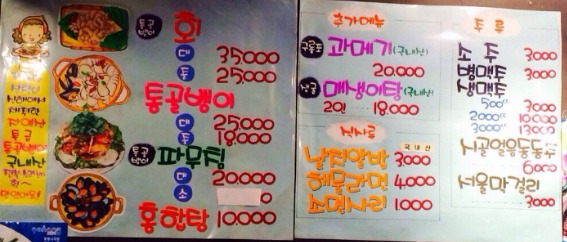 통골뱅이 회
대 35000
중 25,000
통골뱅이
대 25,000
중 18,000
통골뱅이 파무침
대 20,000
소
홍합탕 10,000
자연산
통골뱅이
국내산
추가메뉴
구룡포 과메기 (국내산)
20.000
매생이탕 (국내산)
2인 18.000
식사류
국내산
날치알밥 3,000
해물라면 4000
소면사리 1000
주류
소주 3000
병맥주 3000
생맥주
500cc 3000
2000cc 10,000
3000cc 13000
시골얼음동동주
6000
서울막걸리
3000